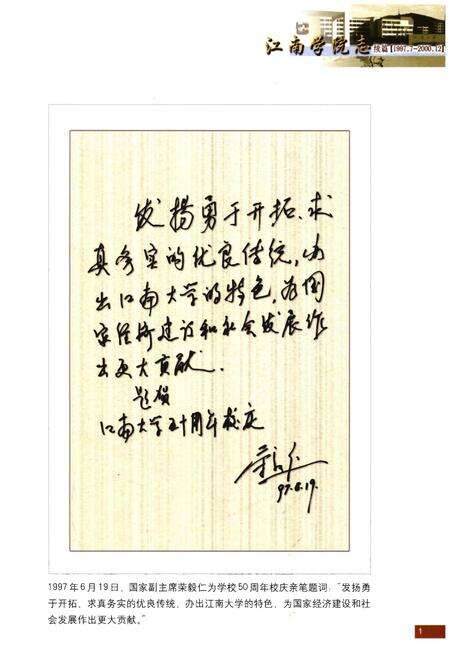 江南学院志 续篇【1997.7-2000.12】
发扬勇于开拓、求
真务实的优良传统,办
出江南大学的特色,为国
家经济建设和社会发展作
出更大贡献.
题贺
江南大学五十周年校庆
荣毅仁
97.6.19.
1997年6月19日,国家副主席荣毅仁为学校50周年校庆亲笔题词:“发扬勇
于开拓、求真务实的优良传统,办出江南大学的特色,为国家经济建设和社
会发展作出更大贡献。”
1